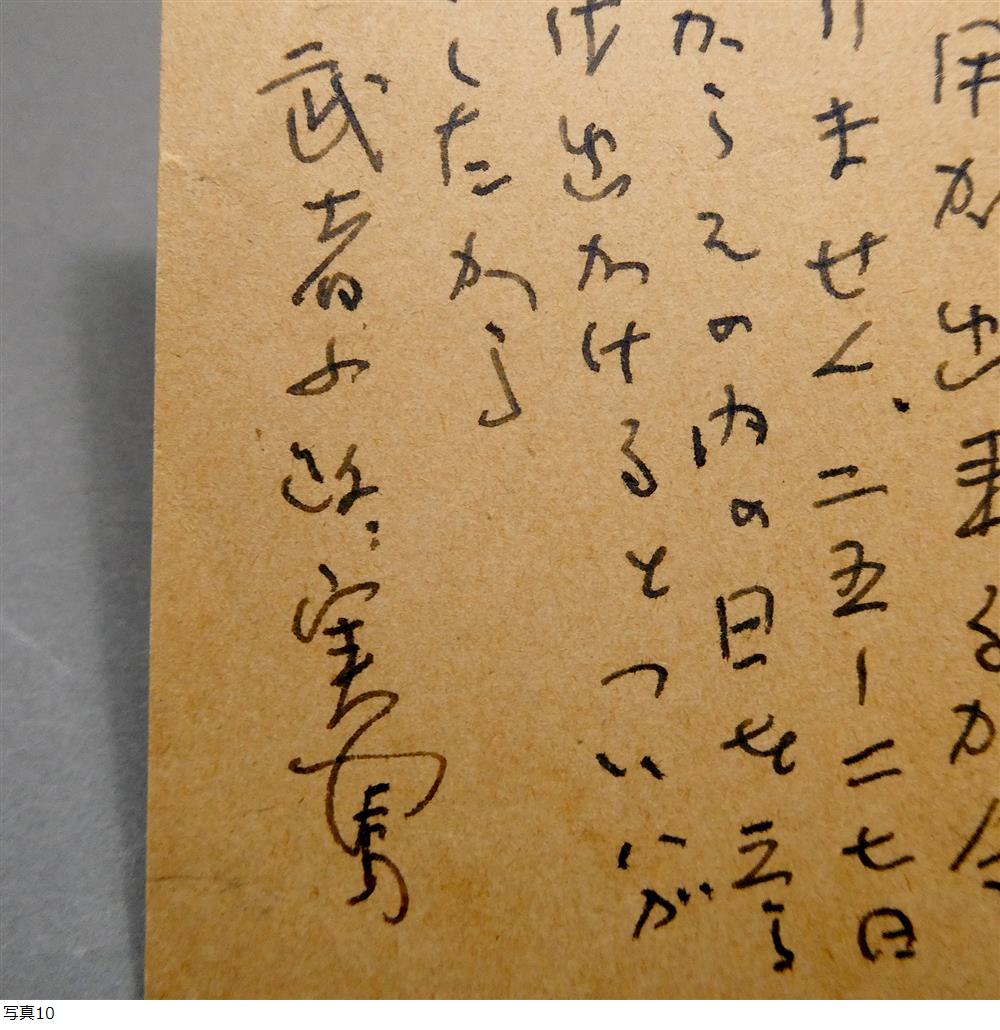 用が出来るか今
ません。二五ー二七日
からえの内の日
出かけるとついいが
したから
武者小路実篤
写真10